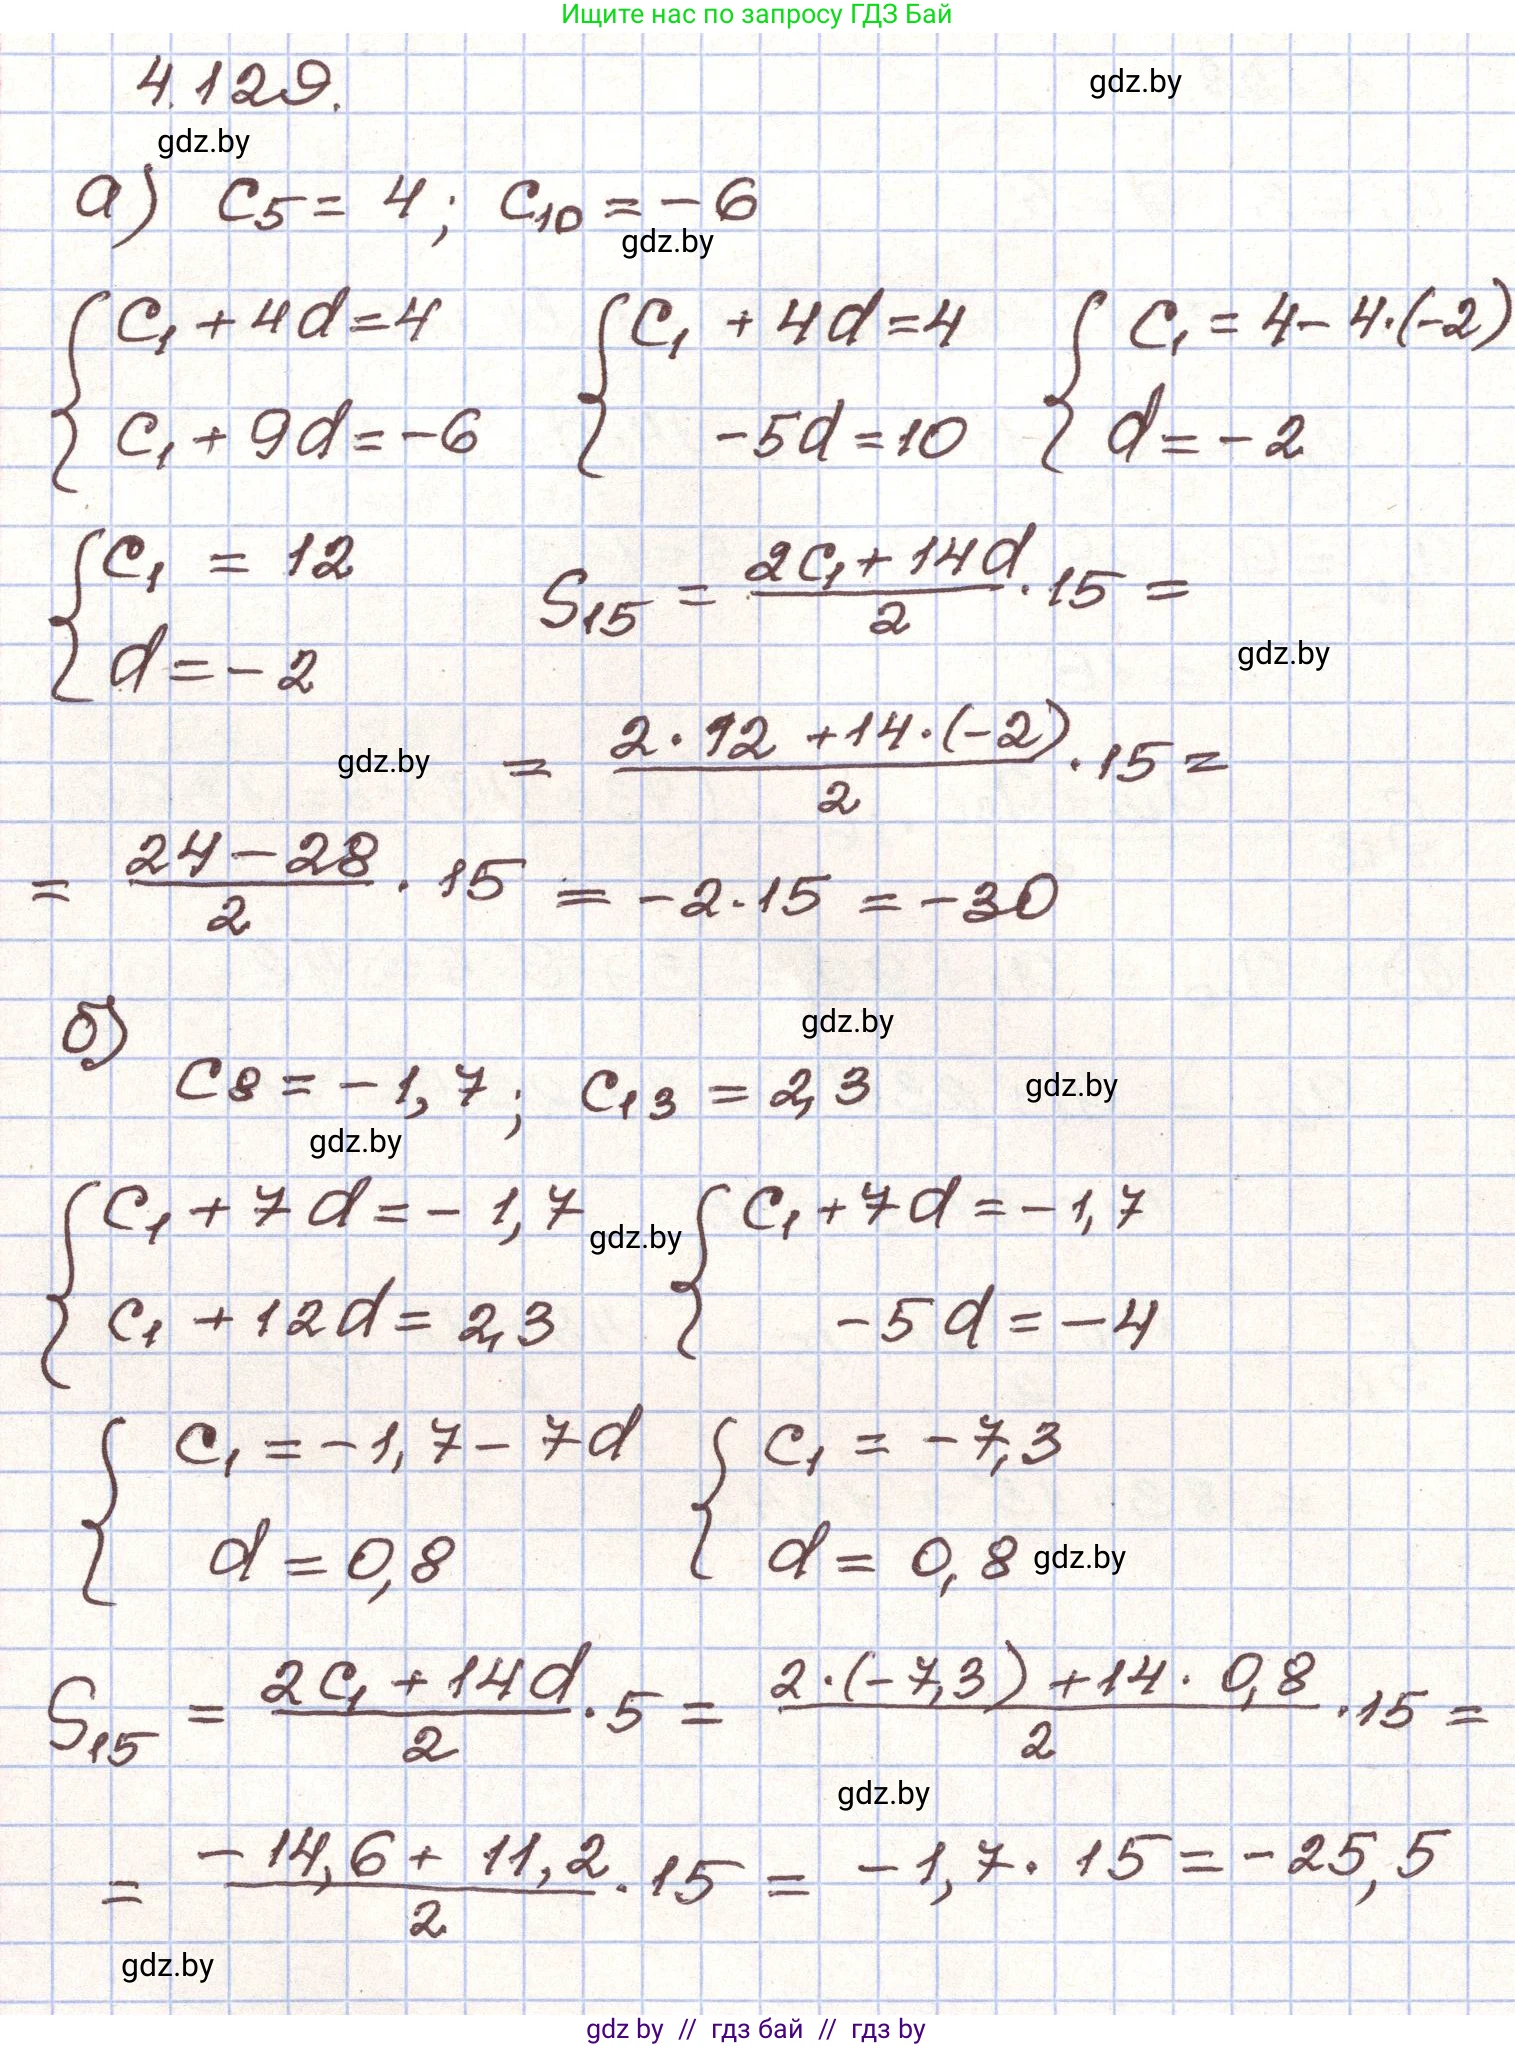 Ищите нас по запросу ГДЗ Бай
4.129.
gdz.by
gdz.by
а) c₅ = 4; c₁₀ = -6
gdz.by
{ c₁ + 4d = 4 { c₁ + 4d = 4 { c₁ = 4 - 4·(-2)
c₁ + 9d = -6 -5d = 10 d = -2
{ c₁ = 12 S₁₅ = (2c₁ + 14d)/2 · 15 =
d = -2
gdz.by
gdz.by = (2·12 + 14·(-2))/2 · 15 =
= (24 - 28)/2 · 15 = -2·15 = -30
б)
gdz.by
c₈ = -1,7; c₁₃ = 2,3 gdz.by
gdz.by
{ c₁ + 7d = -1,7 gdz.by { c₁ + 7d = -1,7
c₁ + 12d = 2,3 -5d = -4
{ c₁ = -1,7 - 7d { c₁ = -7,3
d = 0,8 d = 0,8 gdz.by
S₁₅ = (2c₁ + 14d)/2 · 5 = (2·(-7,3) + 14·0,8)/2 · 15 =
gdz.by
= (-14,6 + 11,2)/2 · 15 = -1,7 · 15 = -25,5
gdz.by
gdz by // гдз бай // гдз by